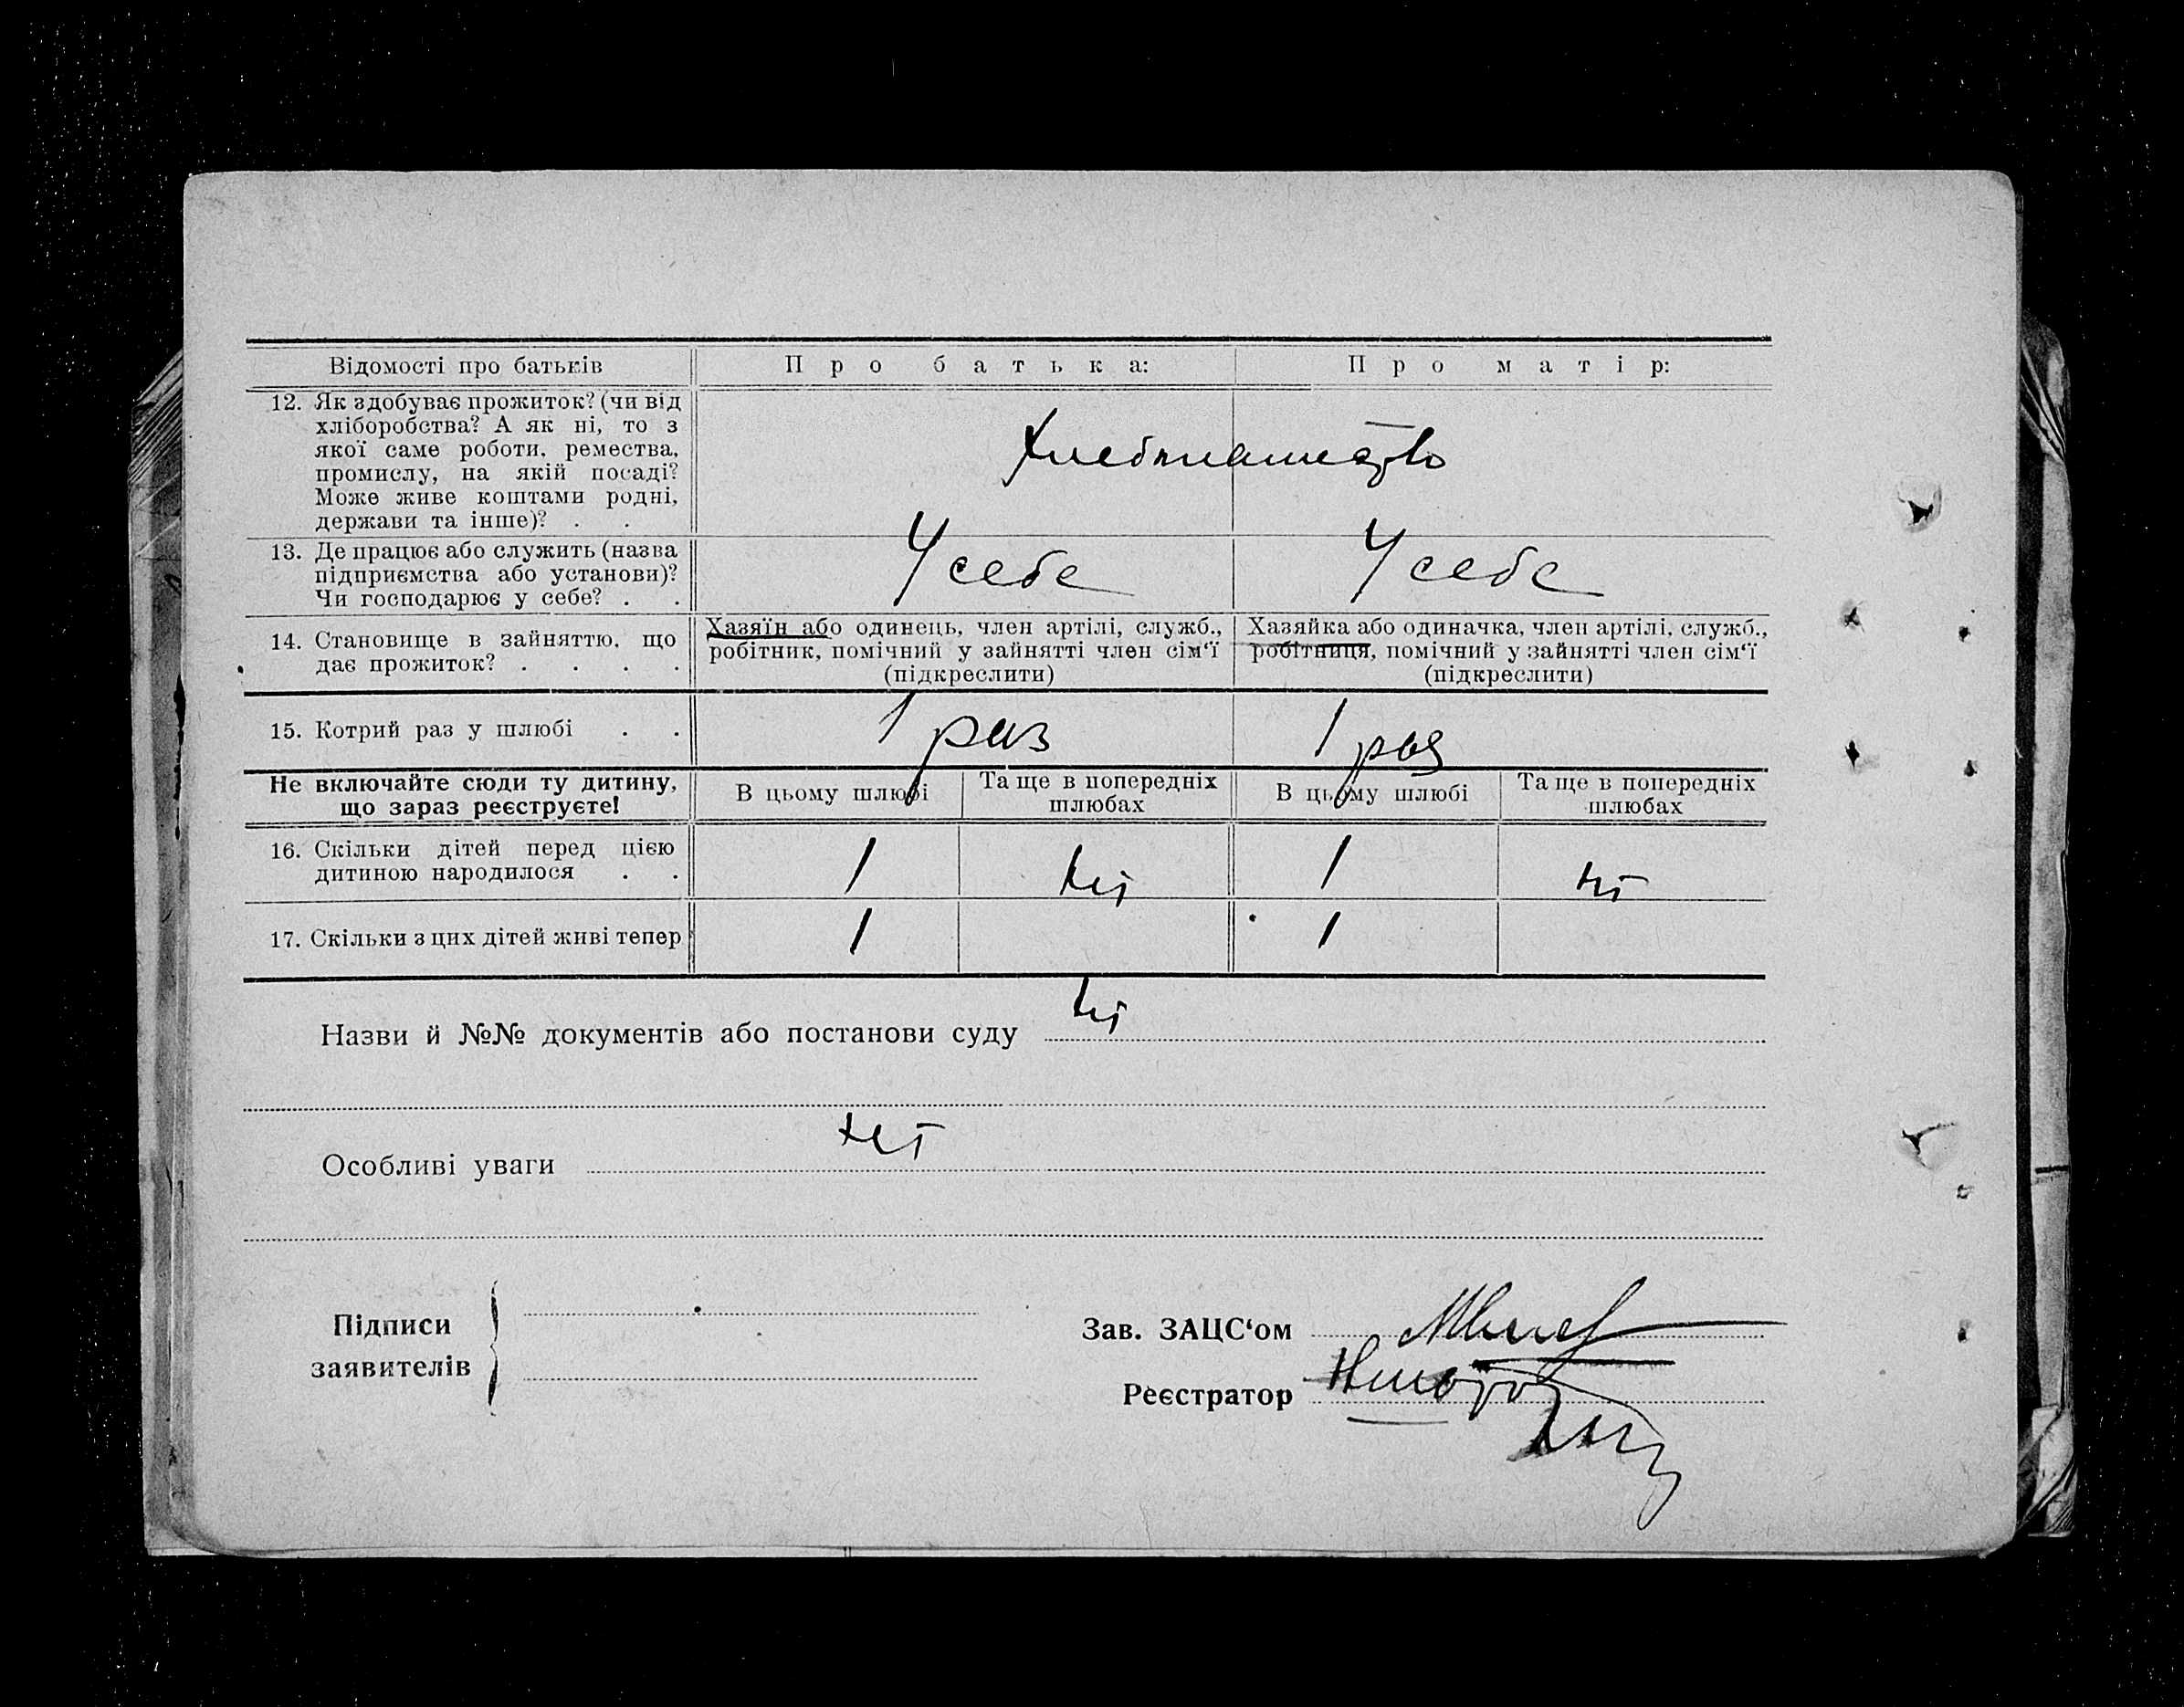 Відомості про батьків Про батька: Про матір:
12. Як здобуває прожиток? (чи від
хліборобства? А як ні, то з
якої саме роботи, ремества,
промислу, на якій посаді?
Може живе коштами родні,
держави та інше)? . .
Хлебопашество
13. Де працює або служить (назва
підприємства або установи)?
Чи господарює у себе? . .
У себе У себе
14. Становище в зайняттю, що
дає прожиток? . . . .
Хазяїн або одинець, член артілі, служб.,
робітник, помічний у зайнятті член сім‘ї
(підкреслити)
Хазяйка або одиначка, член артілі, служб.,
робітниця, помічний у зайнятті член сім‘ї
(підкреслити)
15. Котрий раз у шлюбі . . 1 раз 1 раз
Не включайте сюди ту дитину,
що зараз реєструєте!
В цьому шлюбі Та ще в попередніх
шлюбах
В цьому шлюбі Та ще в попередніх
шлюбах
16. Скільки дітей перед цією
дитиною народилося . .
1 ні 1 ні
17. Скільки з цих дітей живі тепер 1 1
Назви й №№ документів або постанови суду ні
Особливі уваги нет
Підписи
заявителів
Зав. ЗАЦС‘ом
Реєстратор